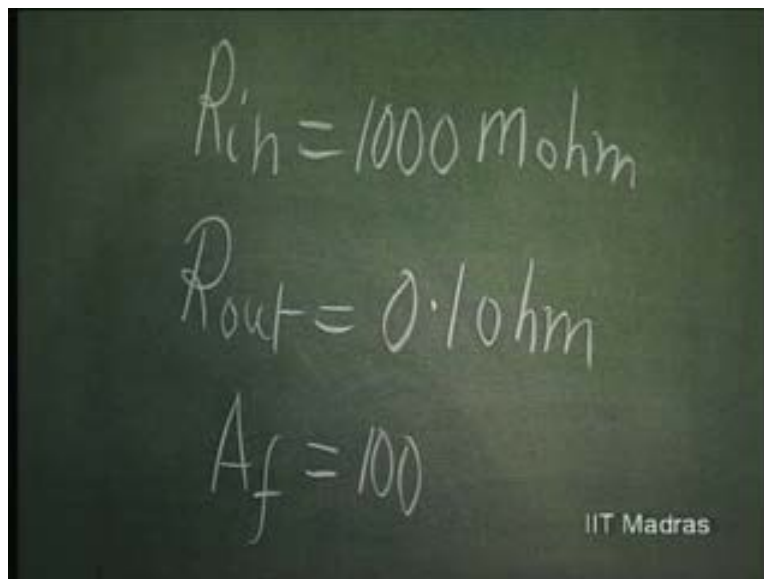 Rin = 1000 Mohm
Rout = 0.1 ohm
Af = 100
IIT Madras